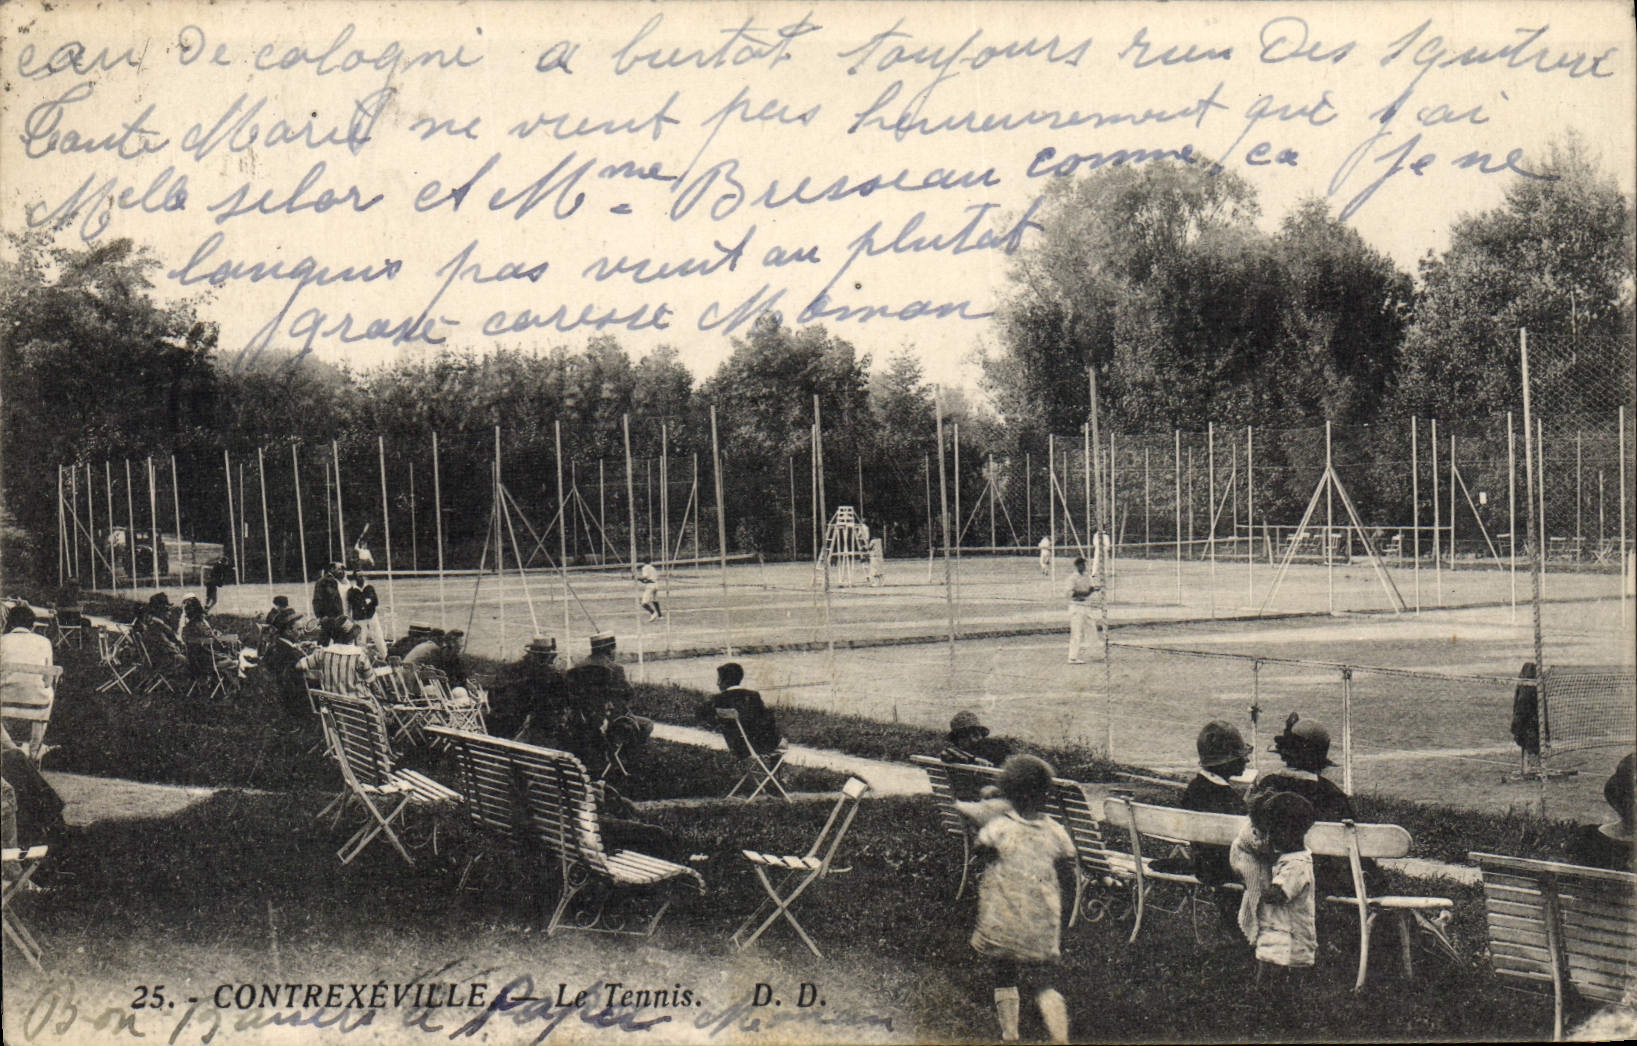 eau de cologne a bientôt toujours rien Des
Tante Marie ne vient pas heureusement que j'ai
Melle selor et Mme Bresseau comme ca Je ne
languis pas vient au plutat
grose caresse Maman
25. - CONTREXÉVILLE. — Le Tennis. D. D.
Bon Baisers a Papa Maman